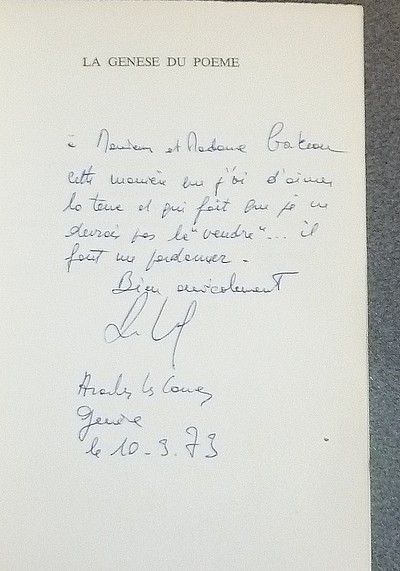 LA GENESE DU POEME
à Monsieur et Madame
cette manière que j'ai d'aimer
la terre et qui fait que je ne
devrais pas la "vendre"... il
faut me pardonner -
Bien amicalement
Genève
le 10 - 3. 73